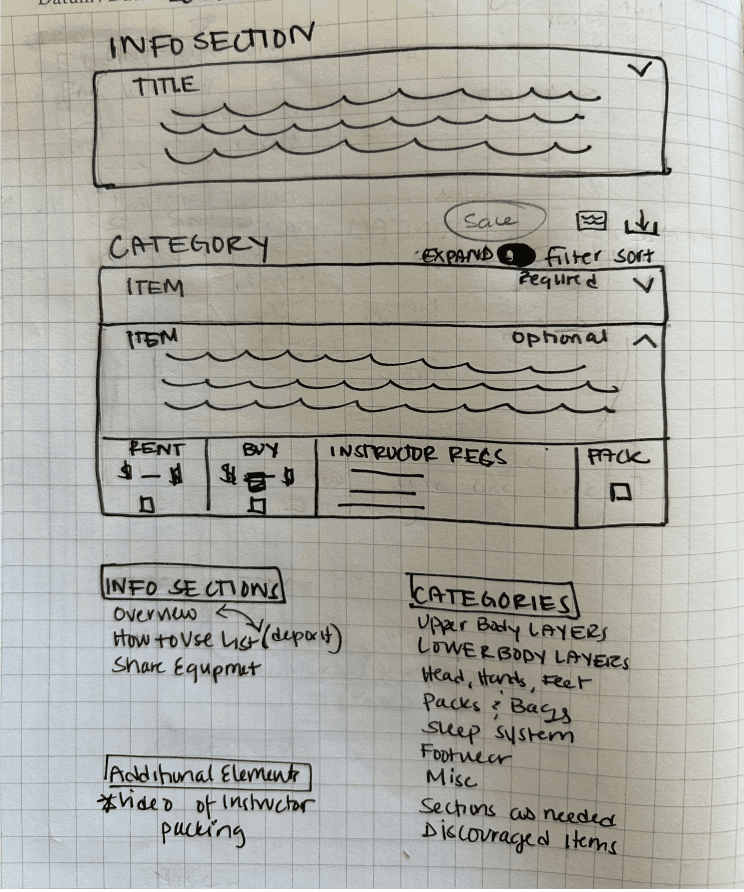 INFO SECTION
TITLE
Save
CATEGORY
EXPAND filter sort
ITEM required
ITEM optional
RENT BUY INSTRUCTOR REGS PACK
$ - $ $ - $
INFO SECTIONS
Overview
How to Use List (deposit)
Share Equpmet
Additional Elements
*Video of Instructor
packing
CATEGORIES
Upper Body LAYERS
LOWER BODY LAYERS
Head, Hands, Feet
Packs & Bags
Sleep system
Footwear
Misc
Sections as needed
Discouraged Items